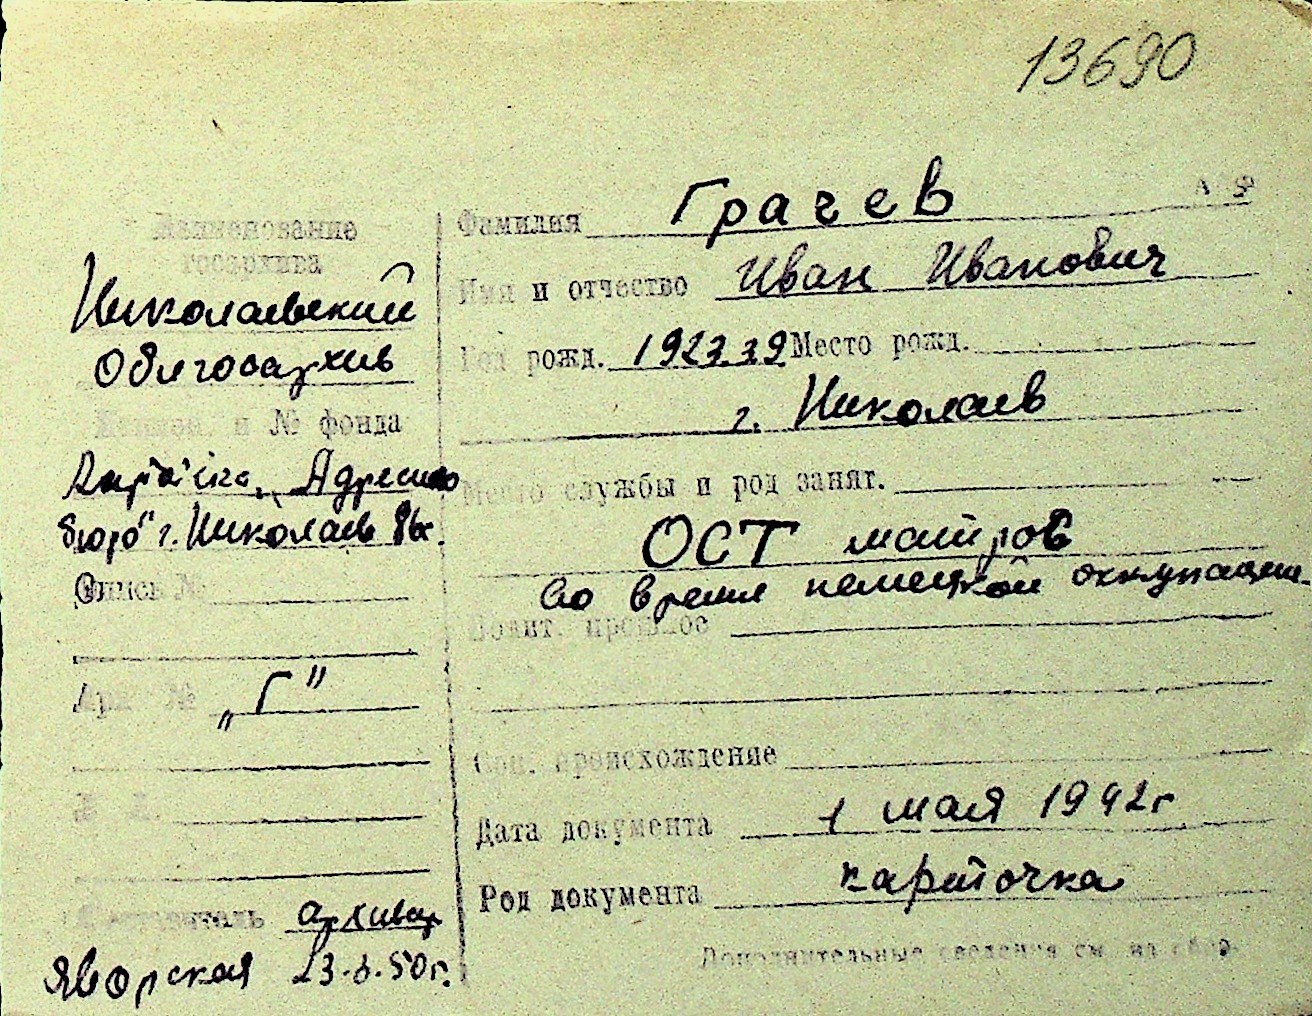 13690
Наименование
госархива
Николаевский
Облгосархив
и № фонда
Адресное
бюро" г. Николаев
Опись №
Арх. №
„Г"
Составитель архивар
Яворская 23.6.50г.
Фамилия Грачев
Имя и отчество Иван Иванович
Год рожд. 1923.3.9 Место рожд.
г. Николаев
Место службы и род занят.
ОСТ матров
во время немецкой оккупации
Полит. прошлое
Соц. происхождение
Дата документа 1 мая 1942г
Род документа карточка
Дополнительные сведения см. на обор.